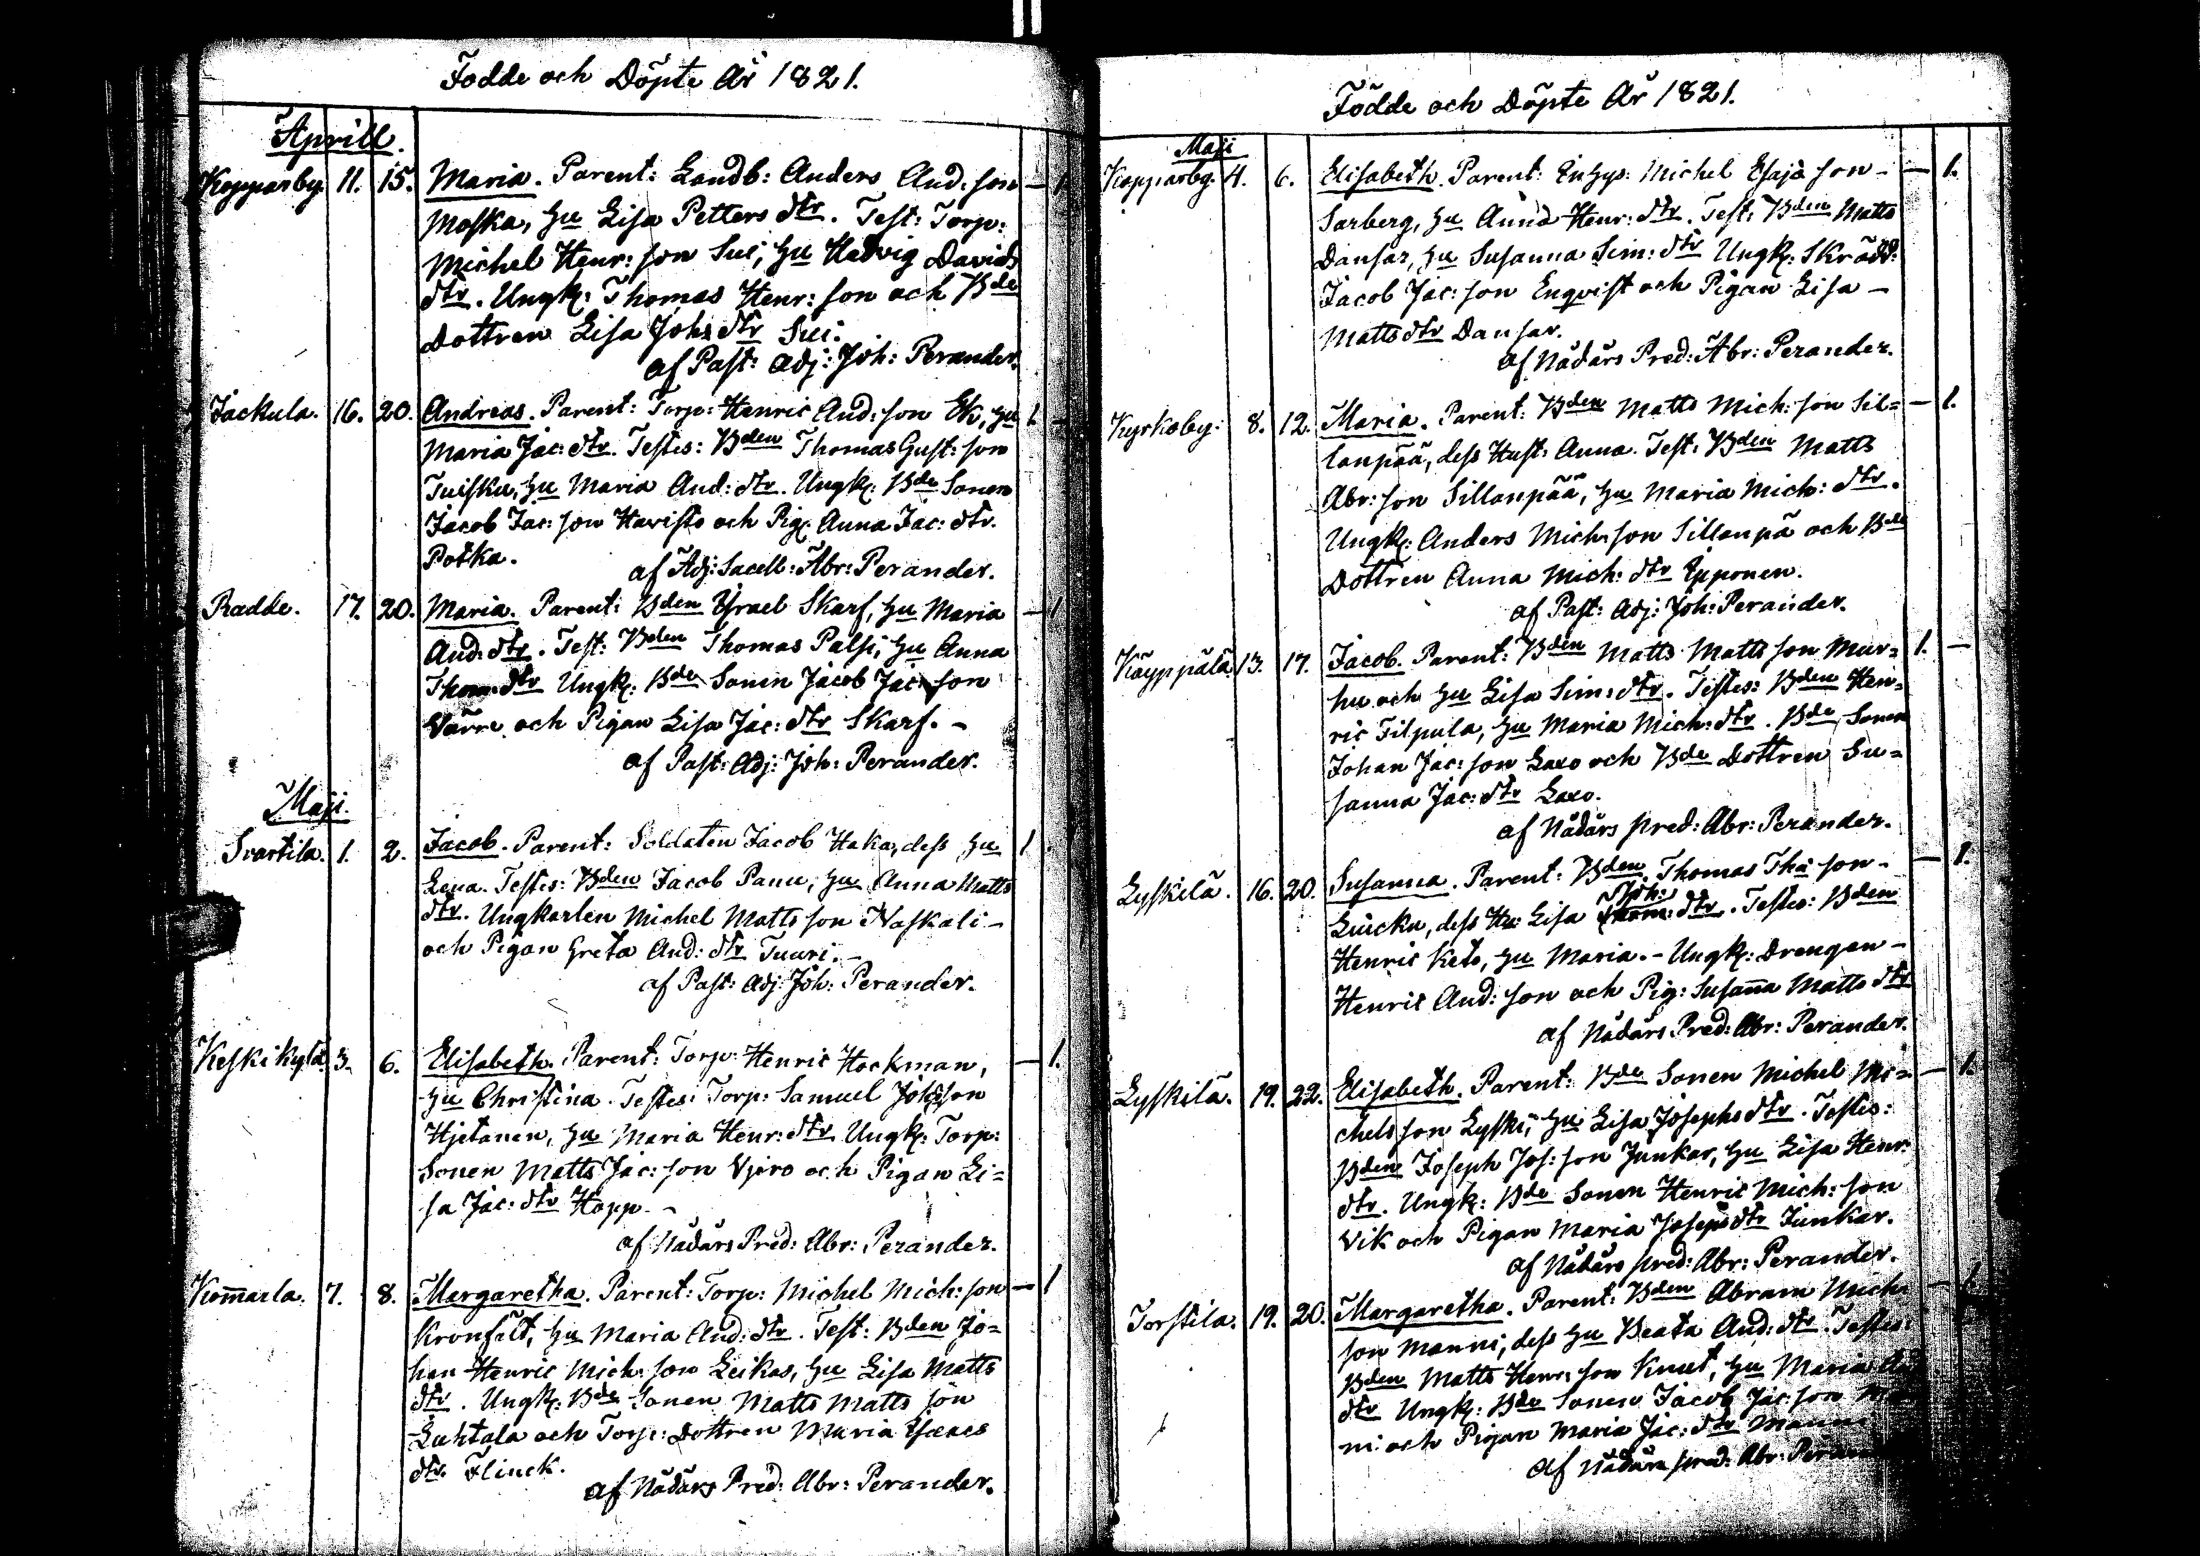 Födde och Döpte År 1821.
Aprill.
Kopparby. 11. 15. Maria. Parent: Landb: Anders And: son — 1.
Moska, Hu Lisa Petters dtr. Test: Torp:
Michel Henr: son Sui, Hu Hedvig Davids
dtr. Ungk: Thomas Henr: son och Bde
Dottren Lisa Johs dtr Sui.
af Past: Adj: Joh: Perander.
Jackula. 16. 20. Andreas. Parent: Torp: Henric And: son Ek, Hu 1. —
Maria Jac: dtr. Testes: Bden Thomas Gust: son
Tuisku, Hu Maria And: dtr. Ungk: Bde Sonen
Jacob Jac: son Havisto och Pig: Anna Jac: dtr.
Potka.
af Adj: Sacell: Abr: Perander.
Radde. 17. 20. Maria. Parent: Bden Ysrael Skarf, Hu Maria — 1
And: dtr. Test: Bden Thomas Palsi, Hu Anna
Thom: dtr Ungk: Bde Sonen Jacob Jac: son
Varre och Pigan Lisa Jac: dtr Skarf. —
af Past: Adj: Joh: Perander.
Maji.
Svartila. 1. 2. Jacob. Parent: Soldaten Jacob Haka, dess Hu 1.
Lena. Testes: Bden Jacob Panu, Hu Anna Matts
dtr. Ungkarlen Michel Matts son Naskali —
och Pigan Greta And: dtr Tuuri. —
af Past: Adj: Joh: Perander.
Keskikylä. 3. 6. Elisabeth. Parent: Torp: Henric Hockman, — 1.
Hu Christina. Testes: Torp: Samuel Johsson
Hjetanen, Hu Maria Henr: dtr Ungk: Torp:
Sonen Matts Jac: son Vjiro och Pigan Li=
sa Jac: dtr Hopp. —
af Nådårs Pred: Abr: Perander.
Kom̄arla. 7. 8. Margaretha. Parent: Torp: Michel Mich: son — 1
Kronfält, Hu Maria And: dtr. Test: Bden Jo=
han Henric Mich: son Leikas, Hu Lisa Matts
dtr. Ungk: Bde Sonen Matts Matts son
Luhtala och Torp: Dottren Maria Isaacs
dtr. Flinck.
af Nådårs Pred: Abr: Perander.
Födde och Döpte År 1821.
Maji
Kopparby. 4. 6. Elisabeth. Parent: Inhys: Michel Esajæ son — — 1.
Sarberg, Hu Anna Henr: dtr. Test: Bden Matts
Dansar, Hu Susanna Sim: dtr Ungk: Skrädd:
Jacob Jac: son Enqvist och Pigan Lisa —
Matts dtr Dansar.
af Nådårs Pred: Abr: Perander.
Kyrkoby. 8. 12. Maria. Parent: Bden Matts Mich: son Sil= — 1.
lanpää, dess Hust: Anna. Test: Bden Matts
Abr: son Sillanpää, Hu Maria Mich: dtr.
Ungk: Anders Mich: son Sillanpä och Bde
Dottren Anna Mich: dtr Epponen.
af Past: Adj: Joh: Perander.
Käyppälä. 13. 17. Jacob. Parent: Bden Matts Matts son Mur= 1. —
hu och Hu Lisa Sim: dtr. Testes: Bden Hen=
ric Filpula, Hu Maria Mich: dtr. Bde Sonen
Johan Jac: son Laxo och Bde Dottren Su=
sanna Jac: dtr Laxo.
af Nådårs pred: Abr: Perander.
Lyskilä. 16. 20. Susanna. Parent: Bden Thomas Thæ son — — 1.
Luicku, dess Hu: Lisa Joh: dtr. Testes: Bden
Henric Keto, Hu Maria. — Ungk: Drengen —
Henric And: son och Pig: Susan̄a Matts dtr
af Nådårs Pred: Abr: Perander.
Lyskilä. 19. 22. Elisabeth. Parent: Bde Sonen Michel Mi= — 1.
chels son Lyski, Hu Lisa Josephs dtr. Testes:
Bden Joseph Jos: son Junkar, Hu Lisa Henr:
dtr. Ungk: Bde Sonen Henric Mich: son
Vik och Pigan Maria Josephs dtr Junkar.
af Nådårs pred: Abr: Perander.
Torstila. 19. 20. Margaretha. Parent: Bden Abram Mich: — 1.
son Manni, dess Hu Beata And: dtr. Testes:
Bden Matts Henr: son Knut, Hu Maria
dtr Ungk: Bde Sonen Jacob Jac: son
ni och Pigan Maria Jac: dtr Manni
af Nådårs pred: Abr: